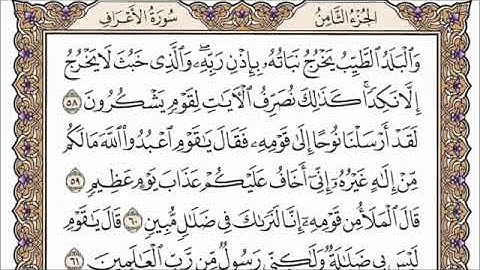 سُورَةُ الأَعْرَافِ الجُزْءُ الثَّامِنُ
وَٱلْبَلَدُ ٱلطَّيِّبُ يَخْرُجُ نَبَاتُهُۥ بِإِذْنِ رَبِّهِۦۖ وَٱلَّذِى خَبُثَ لَا يَخْرُجُ
إِلَّا نَكِدًاۚ كَذَٰلِكَ نُصَرِّفُ ٱلْـَٔايَٰتِ لِقَوْمٍ يَشْكُرُونَ ٥٨
لَقَدْ أَرْسَلْنَا نُوحًا إِلَىٰ قَوْمِهِۦ فَقَالَ يَٰقَوْمِ ٱعْبُدُوا۟ ٱللَّهَ مَا لَكُم
مِّنْ إِلَٰهٍ غَيْرُهُۥٓ إِنِّىٓ أَخَافُ عَلَيْكُمْ عَذَابَ يَوْمٍ عَظِيمٍ ٥٩
قَالَ ٱلْمَلَأُ مِن قَوْمِهِۦٓ إِنَّا لَنَرَىٰكَ فِى ضَلَٰلٍ مُّبِينٍ ٦٠ قَالَ يَٰقَوْمِ
لَيْسَ بِى ضَلَٰلَةٌ وَلَٰكِنِّى رَسُولٌ مِّن رَّبِّ ٱلْعَٰلَمِينَ ٦١